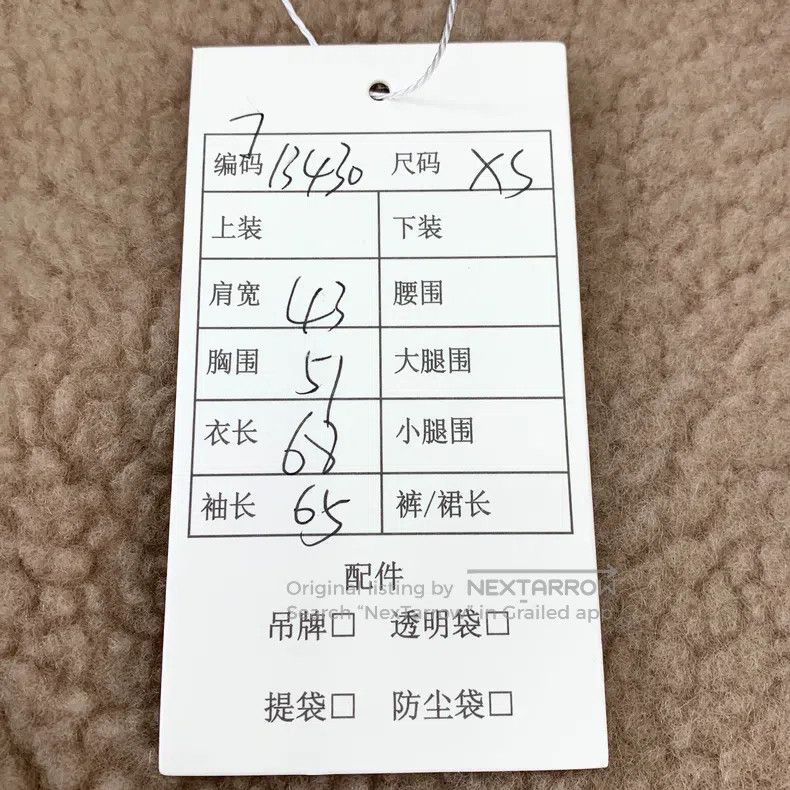 7
编码 13430 尺码 XS
上装 下装
肩宽 43 腰围
胸围 51 大腿围
衣长 68 小腿围
袖长 65 裤/裙长
配件
Original listing by NEXTARROW
Search "NexTarrow" in Grailed app
吊牌□ 透明袋□
提袋□ 防尘袋□